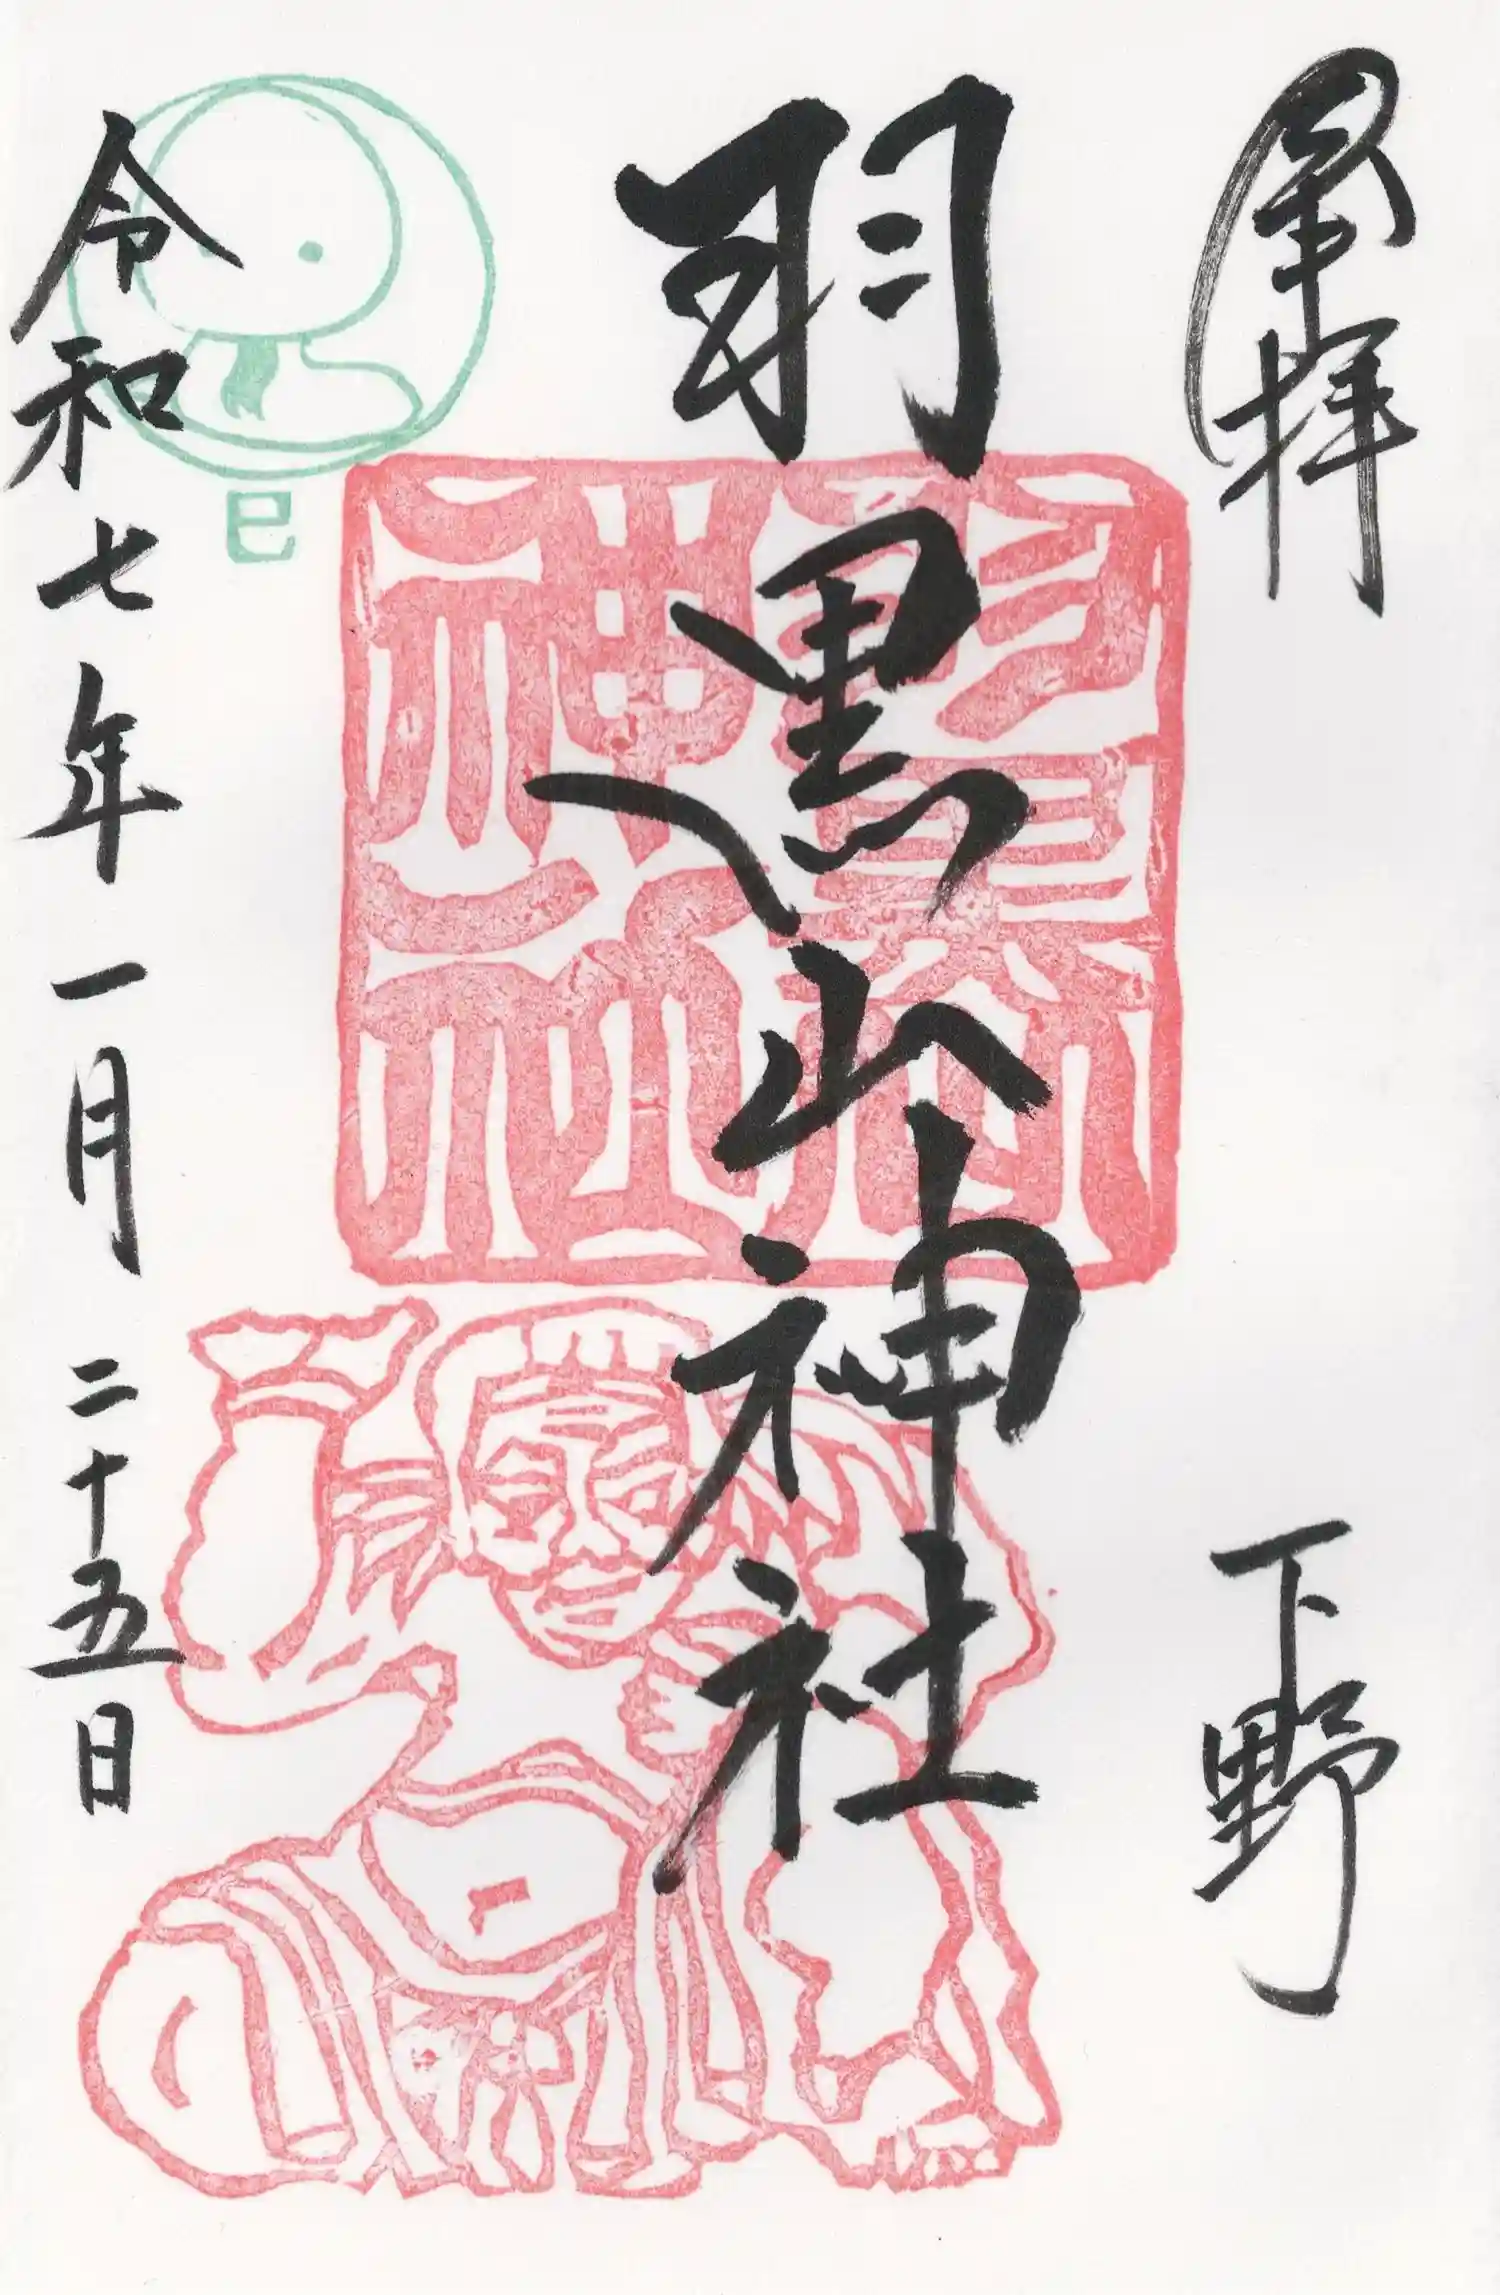 奉拝
下野
羽黒山神社
羽黒山神社
令和七年一月二十五日
巳